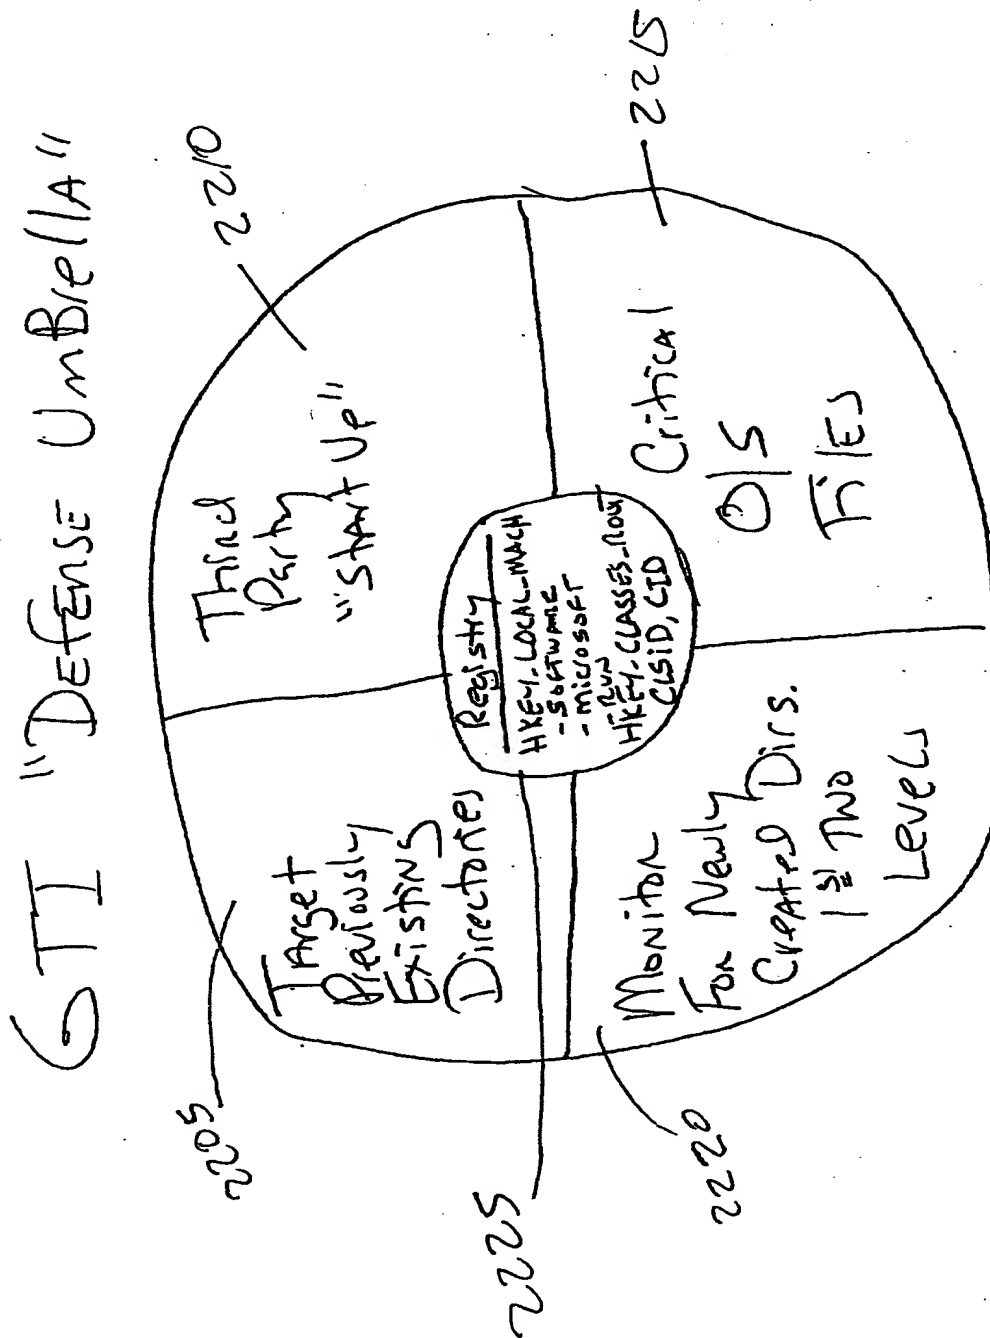 6TI "DEFENSE UmBrellA"
2205
Target
Previously
Existing
Directories
2210
Third
Party
"StArt Up"
2225
Registry
HKEY_LOCAL_MACH
- SOFTWARE
- MICROSOFT
- RUN
HKEY_CLASSES_ROOT
CLSID, CID
2220
Monitor
For Newly
CreAted Dirs.
1st Two
Levels
2215
CriticAl
O/S
FilES